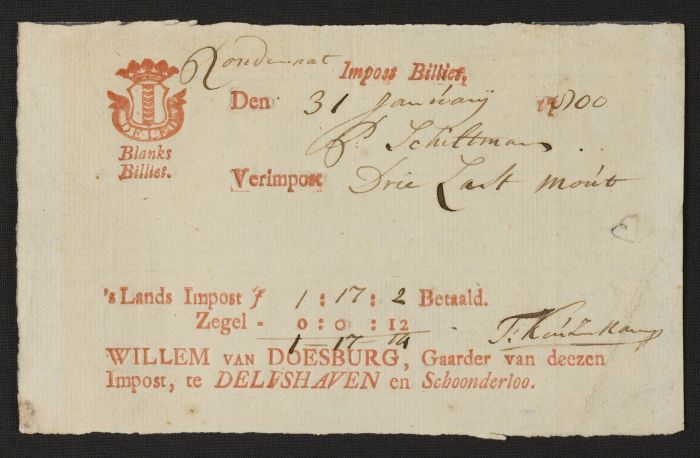 Rondemaat
Impost Billiet.
Den 31 Janúarÿ 1800
P Schiltman
DELFT
Blanks
Billiet.
Verimpost Drie Last moút
'sLands Impost f 1 : 17 : 2 Betaald.
Zegel - 0 : 0 : 12
1 - 17 - 14
WILLEM VAN DOESBURG, Gaarder van deezen
Impost, te DELFSHAVEN en Schoonderloo.